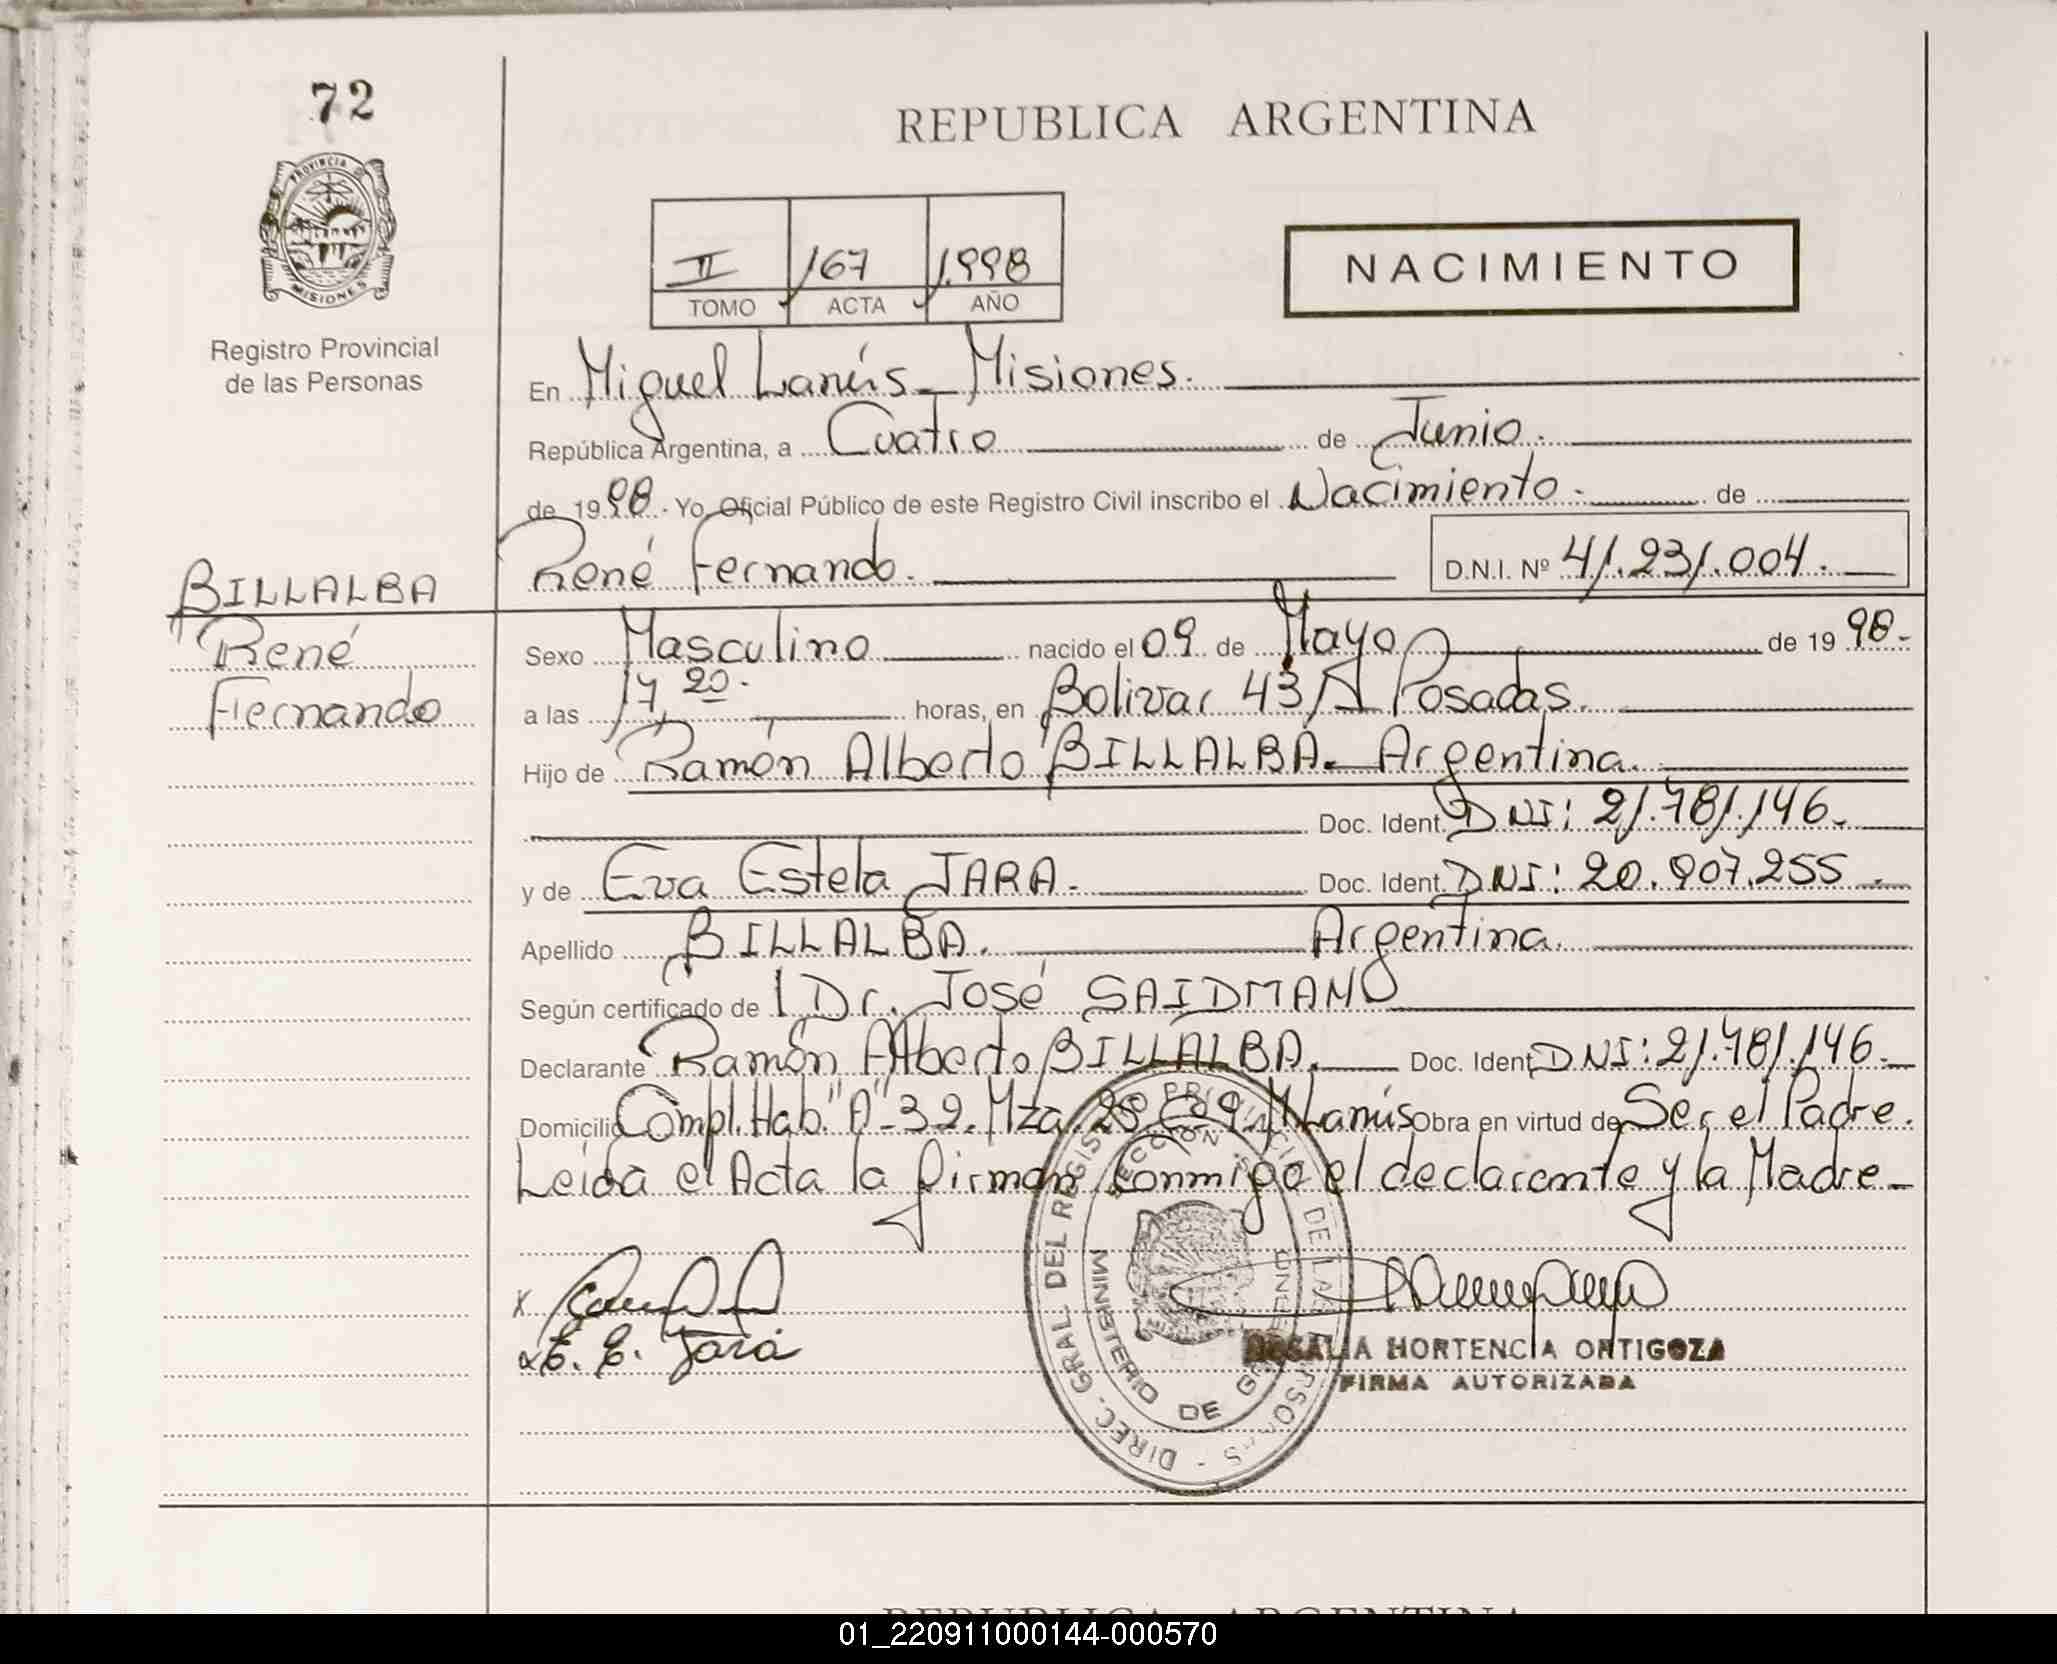 72
REPUBLICA ARGENTINA
PROVINCIA DE MISIONES
Registro Provincial
de las Personas
II 167 1.998
TOMO ACTA AÑO
NACIMIENTO
En Miguel Lanús - Misiones.
República Argentina, a Cuatro de Junio.
de 1998. Yo, Oficial Público de este Registro Civil inscribo el Nacimiento. de
René Fernando. D.N.I. Nº 41.231.004.
BILLALBA
René
Fernando
Sexo Masculino nacido el 09 de Mayo de 1998.
a las 17,20. horas, en Bolivar 43 Posadas.
Hijo de Ramón Alberto BILLALBA. Argentina.
Doc. Ident. DNI: 21.781.146.
y de Eva Estela JARA. Doc. Ident. DNI: 20.907.255.
Apellido BILLALBA. Argentina.
Según certificado de l Dr. José SAIDMAN
Declarante Ramón Alberto BILLALBA. Doc. Ident. DNI: 21.781.146.
Domicilio Compl. Hab. "A"-32. Mza. 25 C-29. M. Lanús Obra en virtud de Ser el Padre.
Leída el Acta la firman conmigo el declarante y la Madre-
DIREC. GRAL DEL REGISTRO PROVINCIAL DE LAS PERSONAS
MINISTERIO DE
E. E. Jara
ROSALIA HORTENCIA ORTIGOZA
FIRMA AUTORIZADA
REPUBLICA ARGENTINA
01_220911000144-000570